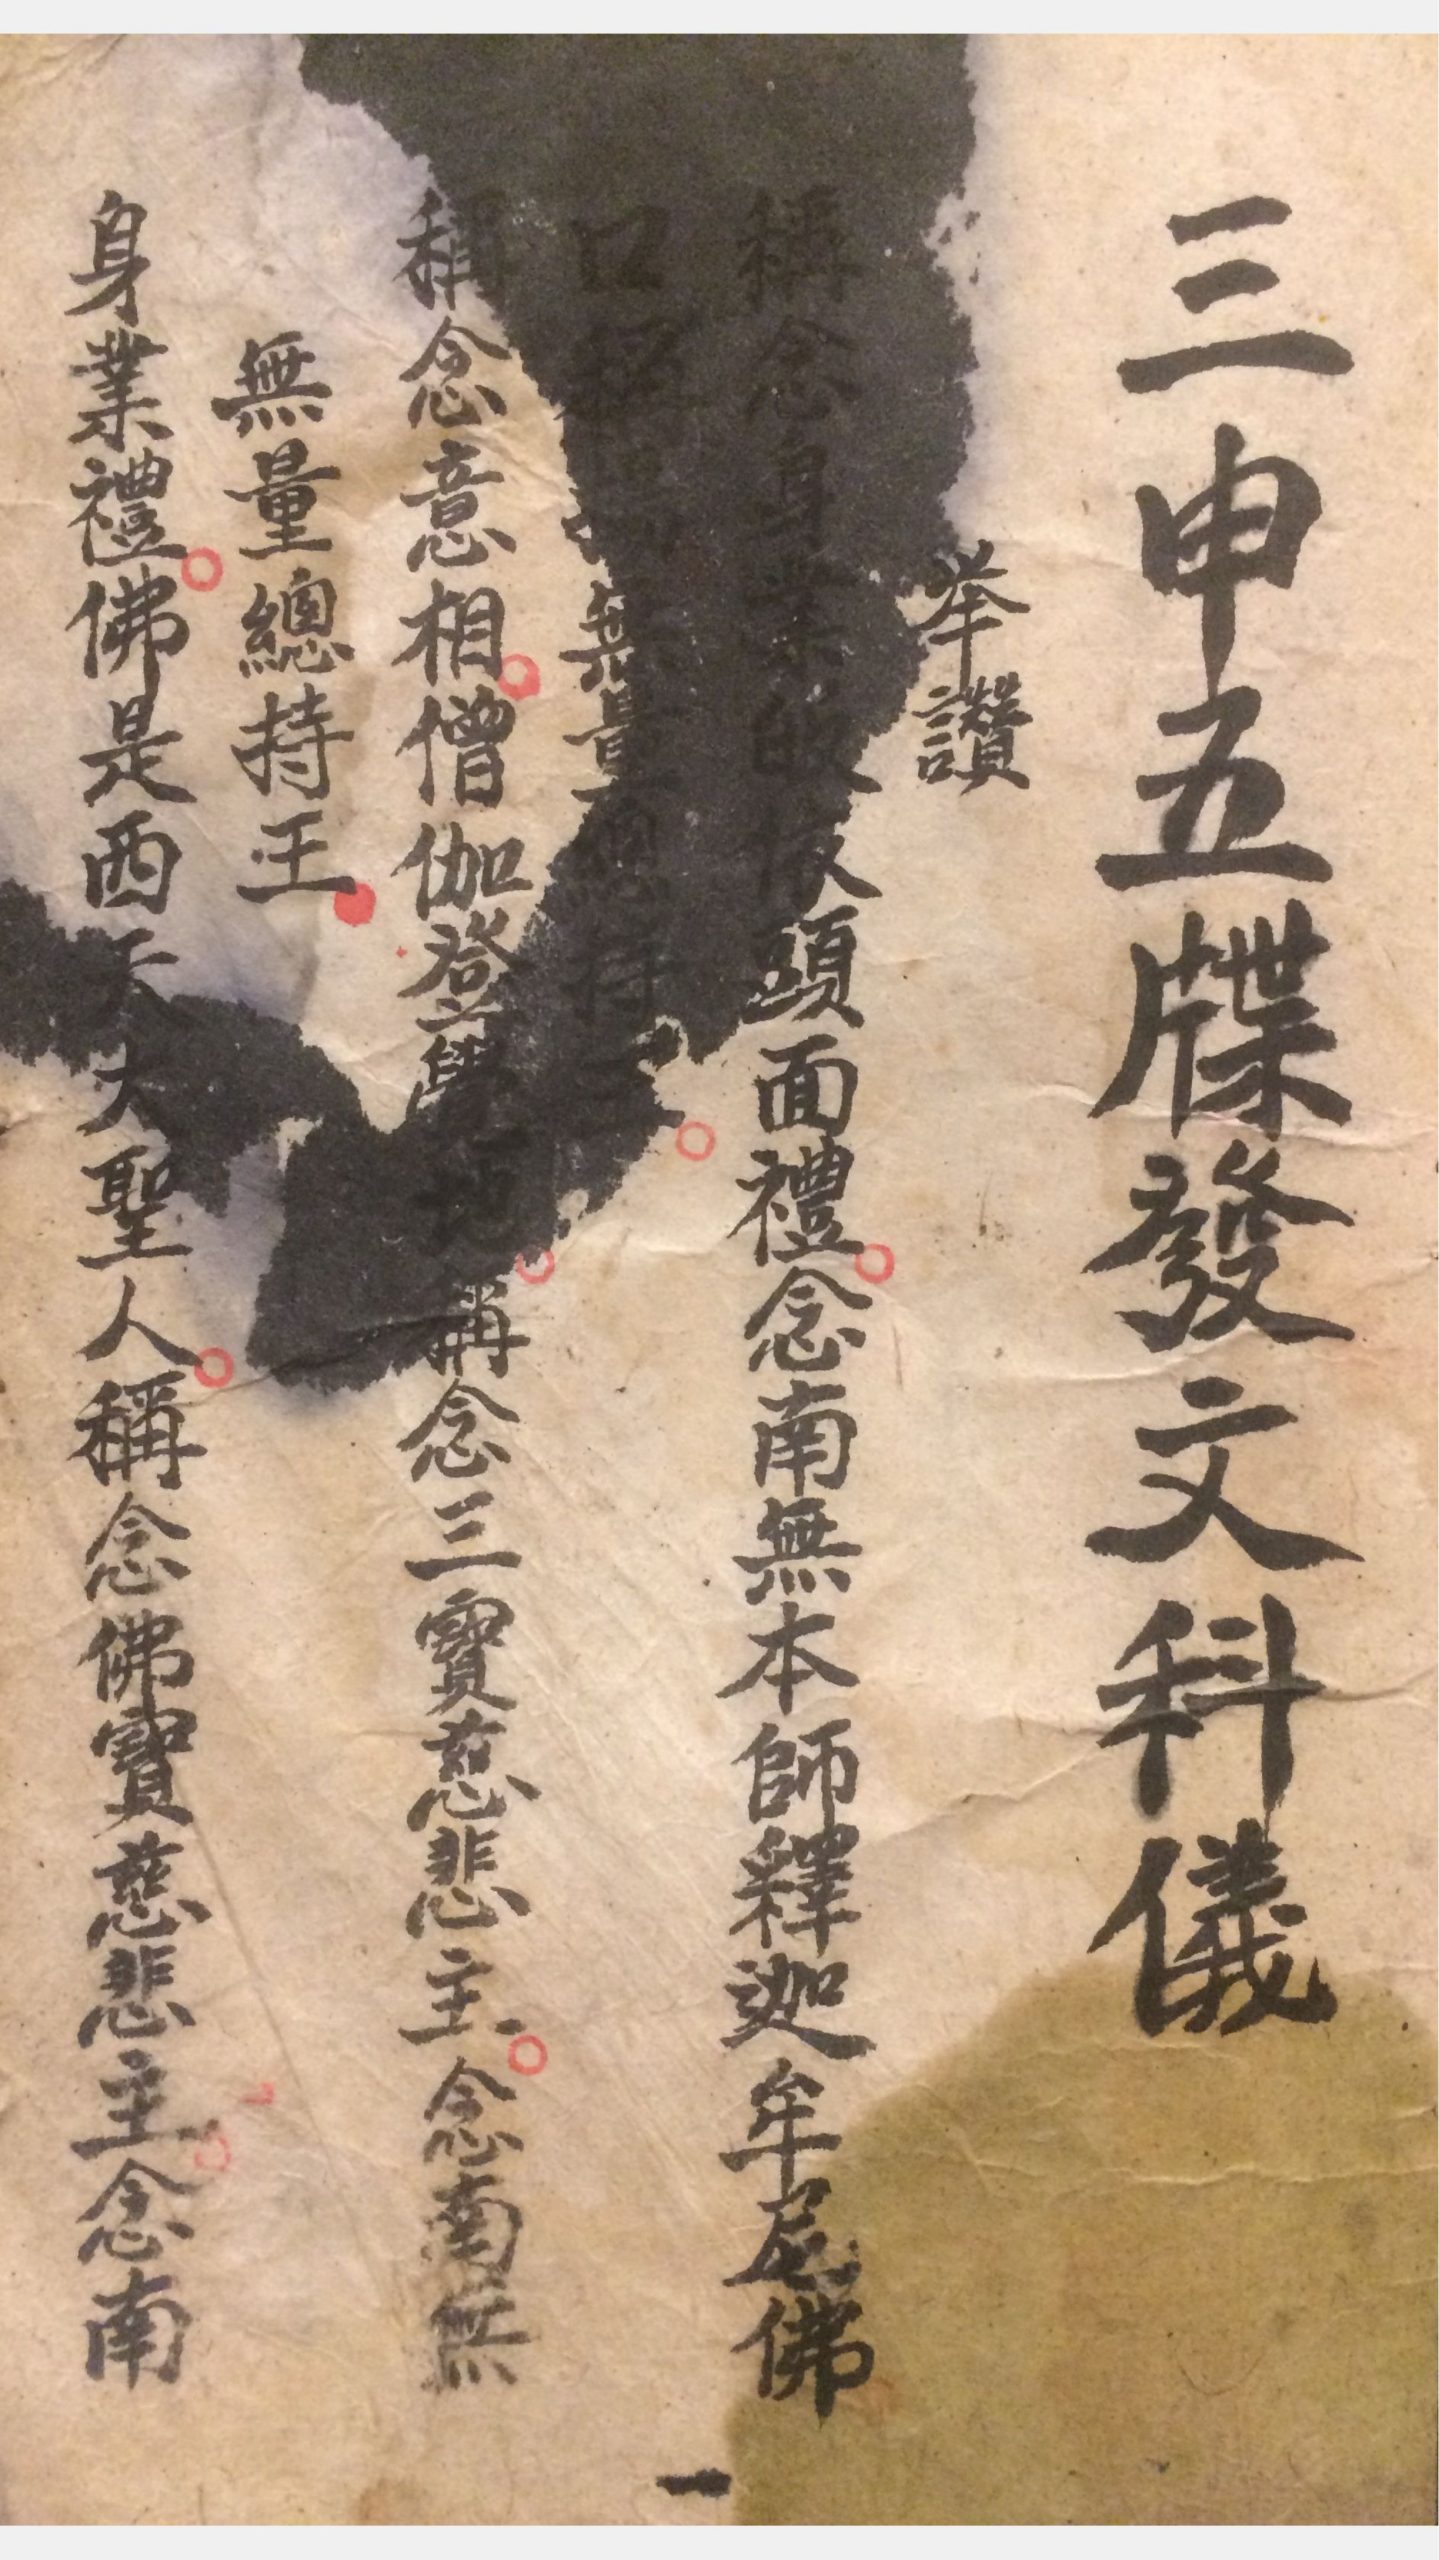 三申五牒發文科儀
举讚
稱念身業皈依頭面禮念南無本師釋迦牟尼佛
口 無量總持王
稱念意相僧伽登 地稱念三寶慈悲主念南無
無量總持王
身業禮佛是西天大聖人稱念佛寶慈悲主念南
一